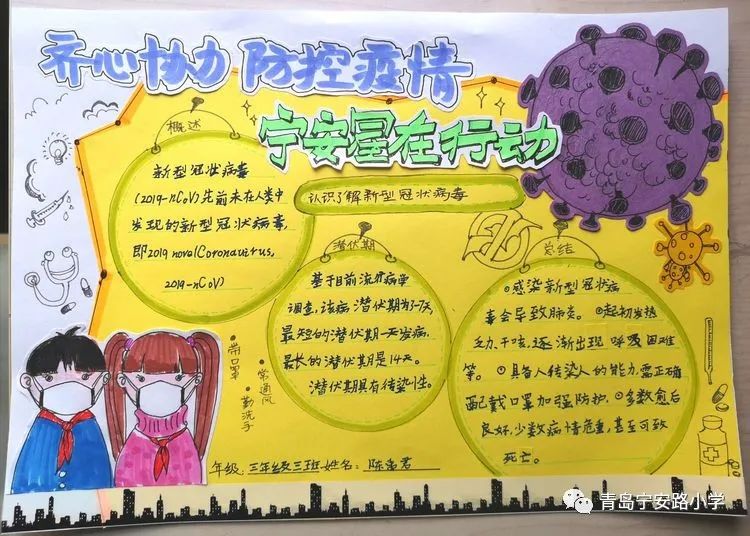 齐心协力 防控疫情
宁安星在行动
概述
新型冠状病毒
(2019-nCoV)先前未在人类中
发现的新型冠状病毒,
即2019 novel(Coronavirus,
2019-nCoV)
认识了解新型冠状病毒
潜伏期
基于目前流行病学
调查,该病潜伏期为1-7天,
最短的潜伏期一天发病,
最长的潜伏期是14天。
潜伏期具有传染性。
总结
感染新型冠状病
毒会导致肺炎。起初发热
乏力,干咳,逐渐出现呼吸困难
等。具备人传人的能力,需正确
配戴口罩加强防护。多数愈后
良好,少数病情危重,甚至可致
死亡。
·带口罩
·常通风
·勤洗手
年级:三年级三班 姓名:陈
青岛宁安路小学